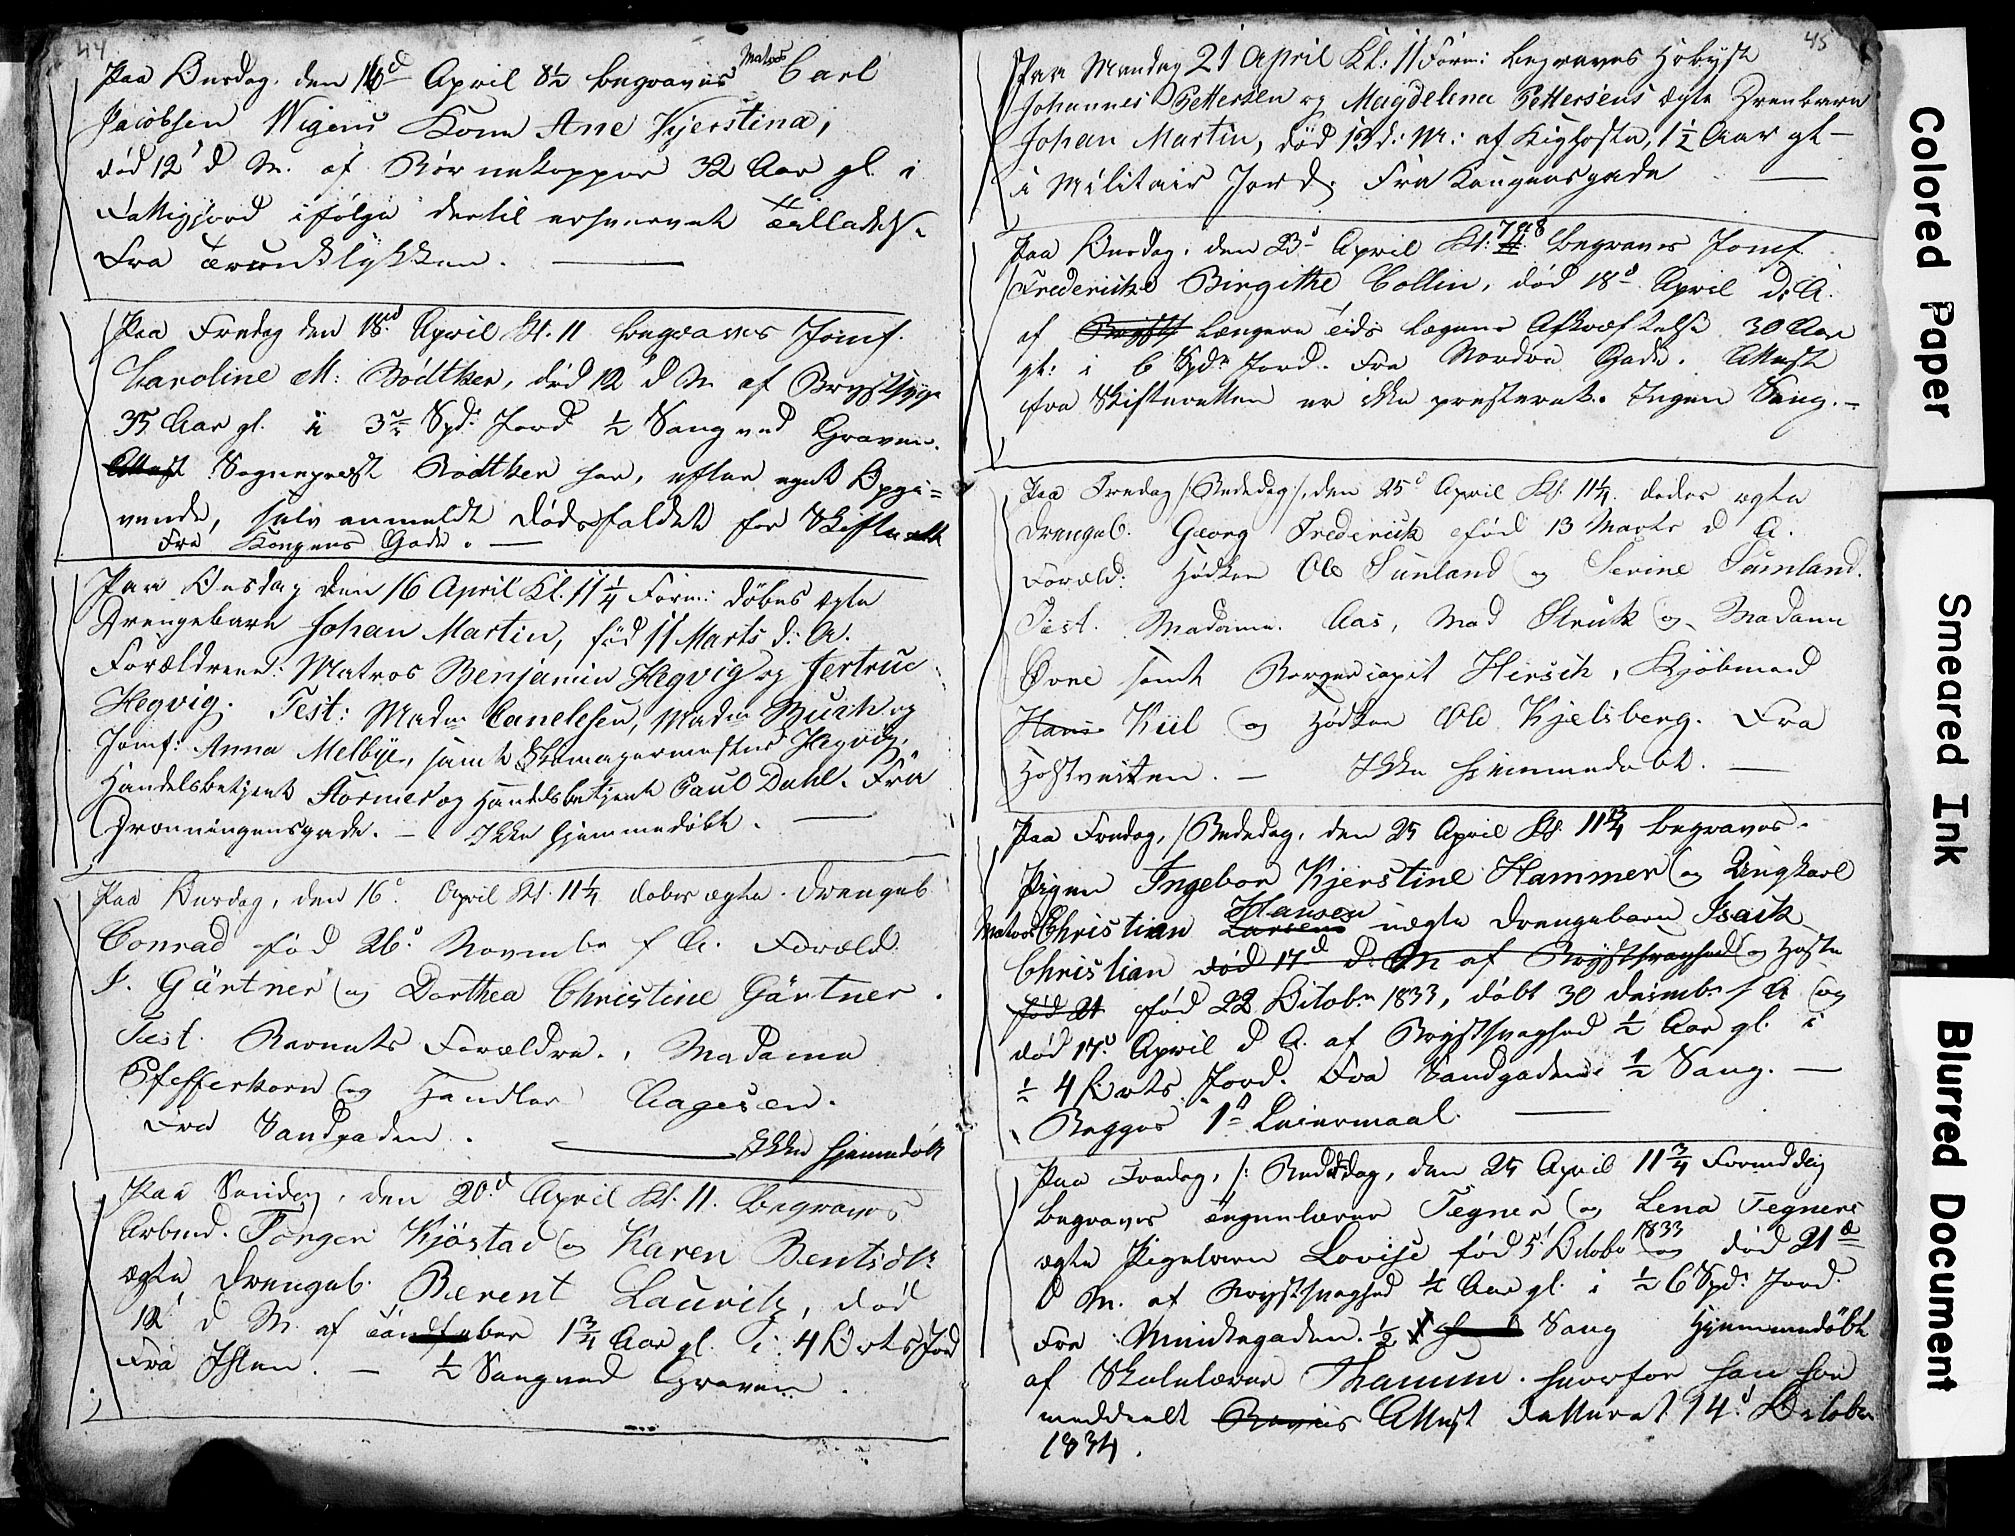 44
Paa Onsdag, den 16d April 8½ begraves Matros Carl
Jacobsen Wigens Kone Ane Kjerstina,
død 12 d M. af Børnekopper 32 Aar gl. i
Fattigjord ifølge dertil erhvervet Tilladelse
Fra
Paa Fredag den 18d April Kl. 11 begraves Jomf.
Caroline M: Bødtker, død 12 d M. af Brystsyge
35 Aar gl. i 3 Spd: Jord ½ Sang ved Graven.
Attest Sognepræst Bødtker har, efter eget Opgi=
vende, selv anmeldt Dødsfaldet for Skifteret
Fra Kongens Gade. —
Paa Onsdag den 16 April Kl. 11¼ Form: døbes ægte
Drengebarn Johan Martin, fød 11 Marts d: A.
Forældrene: Matros Benjamin Hegvig og Jertrue
Hegvig. Test: Madm Canelesen, Madm Buch og
Jomf: Anna Melbye, samt Skomagermester Hegvig,
Handelsbetjent Størmer og Handelsbetjent Paul Dahl. Fra
Dronningensgade. — Ikke hjemmedøbt. —
Paa Onsdag, den 16d April Kl. 11¼ døbes ægte Drengeb
Conrad fød 26d Novembr f A. Foræld.
J. Gärtner og Dorthea Christine Gärtner.
Test. Barnets Forældre, Madame
Pfefferkorn og Handler Aagesen.
Fra Sandgaden. — Ikke hjemmedøbt
Paa Søndag, den 20d April Kl. 11. begraves
Arbmd. Torger Kjøstad og Karen Bentsdtr
ægte Drengeb. Berent Lauritz, død
12 d M. af Tandfeber 1¾ Aar gl. i 4 Orts Jord
Fra Ihlen. — ½ Sang ved Graven.
45
Paa Mandag 21 April Kl: 11 Form: begraves
Johannes Pettersen og Magdelena Pettersens ægte Drenbarn
Johan Martin, død 13 d: M: af Kighoste, 1½ Aar gl —
i Militair Jord. Fra Kongensgade —
Paa Onsdag, den 23d April Kl: 7 a 8 begraves Jomf
Fredericke Birgithe Collin, død 18d April d: A.
af Bryst længere Tids Afkræftelse 30 Aar
gl: i 6 Spdr Jord. Fra Nordre Gade. Attest
fra Skifteretten er ikke presteret. Ingen Sang. —
Paa Fredag /: Bededag :/, den 25d April Kl. 11¼. døbes ægte
Drengeb. Georg Frederick fød 13 Marts d A.
Foræld: Høcker Ole Sunland og Serine Sunland.
Test. Madame Aas, Mad Struck og Madame
Øvne samt Borgercapit Hirsch, Kjøbmand
Hans Kiil og Høcker Ole Kjelsberg. Fra
— Ikke hjemmedøbt. —
Paa Fredag, /: Bededag, den 25 April Kl. 11¾ begraves.
Pigen Ingebor Kjerstine Hammer og Ungkarl
Matros Christian Larsens Hansen uægte Drengebarn Isack
Christian død 17d d: M af Brystsvaghed og Hoste
fød 21 fød 22 Octobr 1833, døbt 30 Decembr f A og
død 17d April d A. af Brystsvaghed ½ Aar gl. i
½ 4 Orts Jord. Fra Sandgaden. ½ Sang. —
Begges 1te Leiermaal. —
Paa Fredag, /: Bededag, den 25 April 11¾ Formiddag
begraves Tegner og Lena Tegners
ægte Pigebarn Lovise fød 5 Octobr 1833 og død 21de
d M. af Brystsvaghed ½ Aar gl. i ½ 6 Spd: Jord.
Fra Munkegaden. ½ Sang Hjemmedøbt
af Skolelærer Thaumme. hvorfor han har
meddeelt Beviis Attest datteret 14d October
1834.
Colored Paper
Smeared Ink
Blurred Document